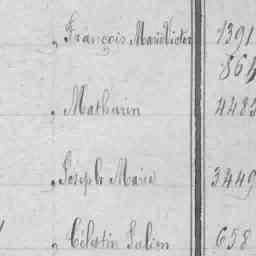 „ François Marie Victor 1391
864
„ Mathurin 4483
„ Joseph Marie 3449
„ Célestin Julien 658